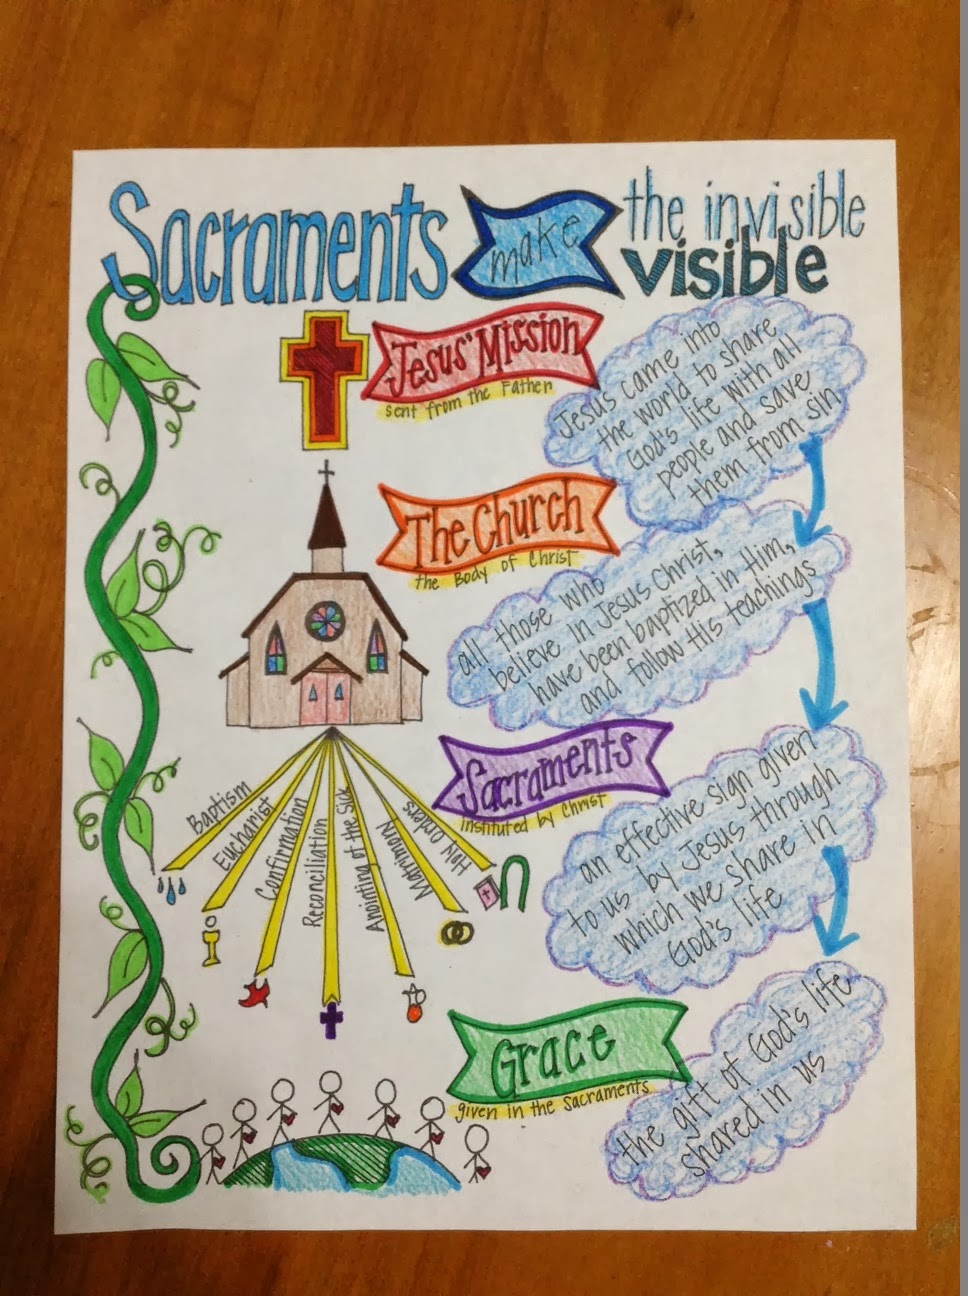 Sacraments make the invisible
visible
Jesus' Mission
sent from the Father
Jesus came into
the world to share
God's life with all
people and save
them from sin
The Church
the Body of Christ
all those who
believe in Jesus Christ,
have been baptized in Him,
and follow His teachings
Sacraments
instituted by Christ
an effective sign given
to us by Jesus through
which we share in
God's life
Baptism
Eucharist
Confirmation
Reconciliation
Anointing of the Sick
Matrimony
Holy Orders
Grace
given in the sacraments
the gift of God's life
shared in us